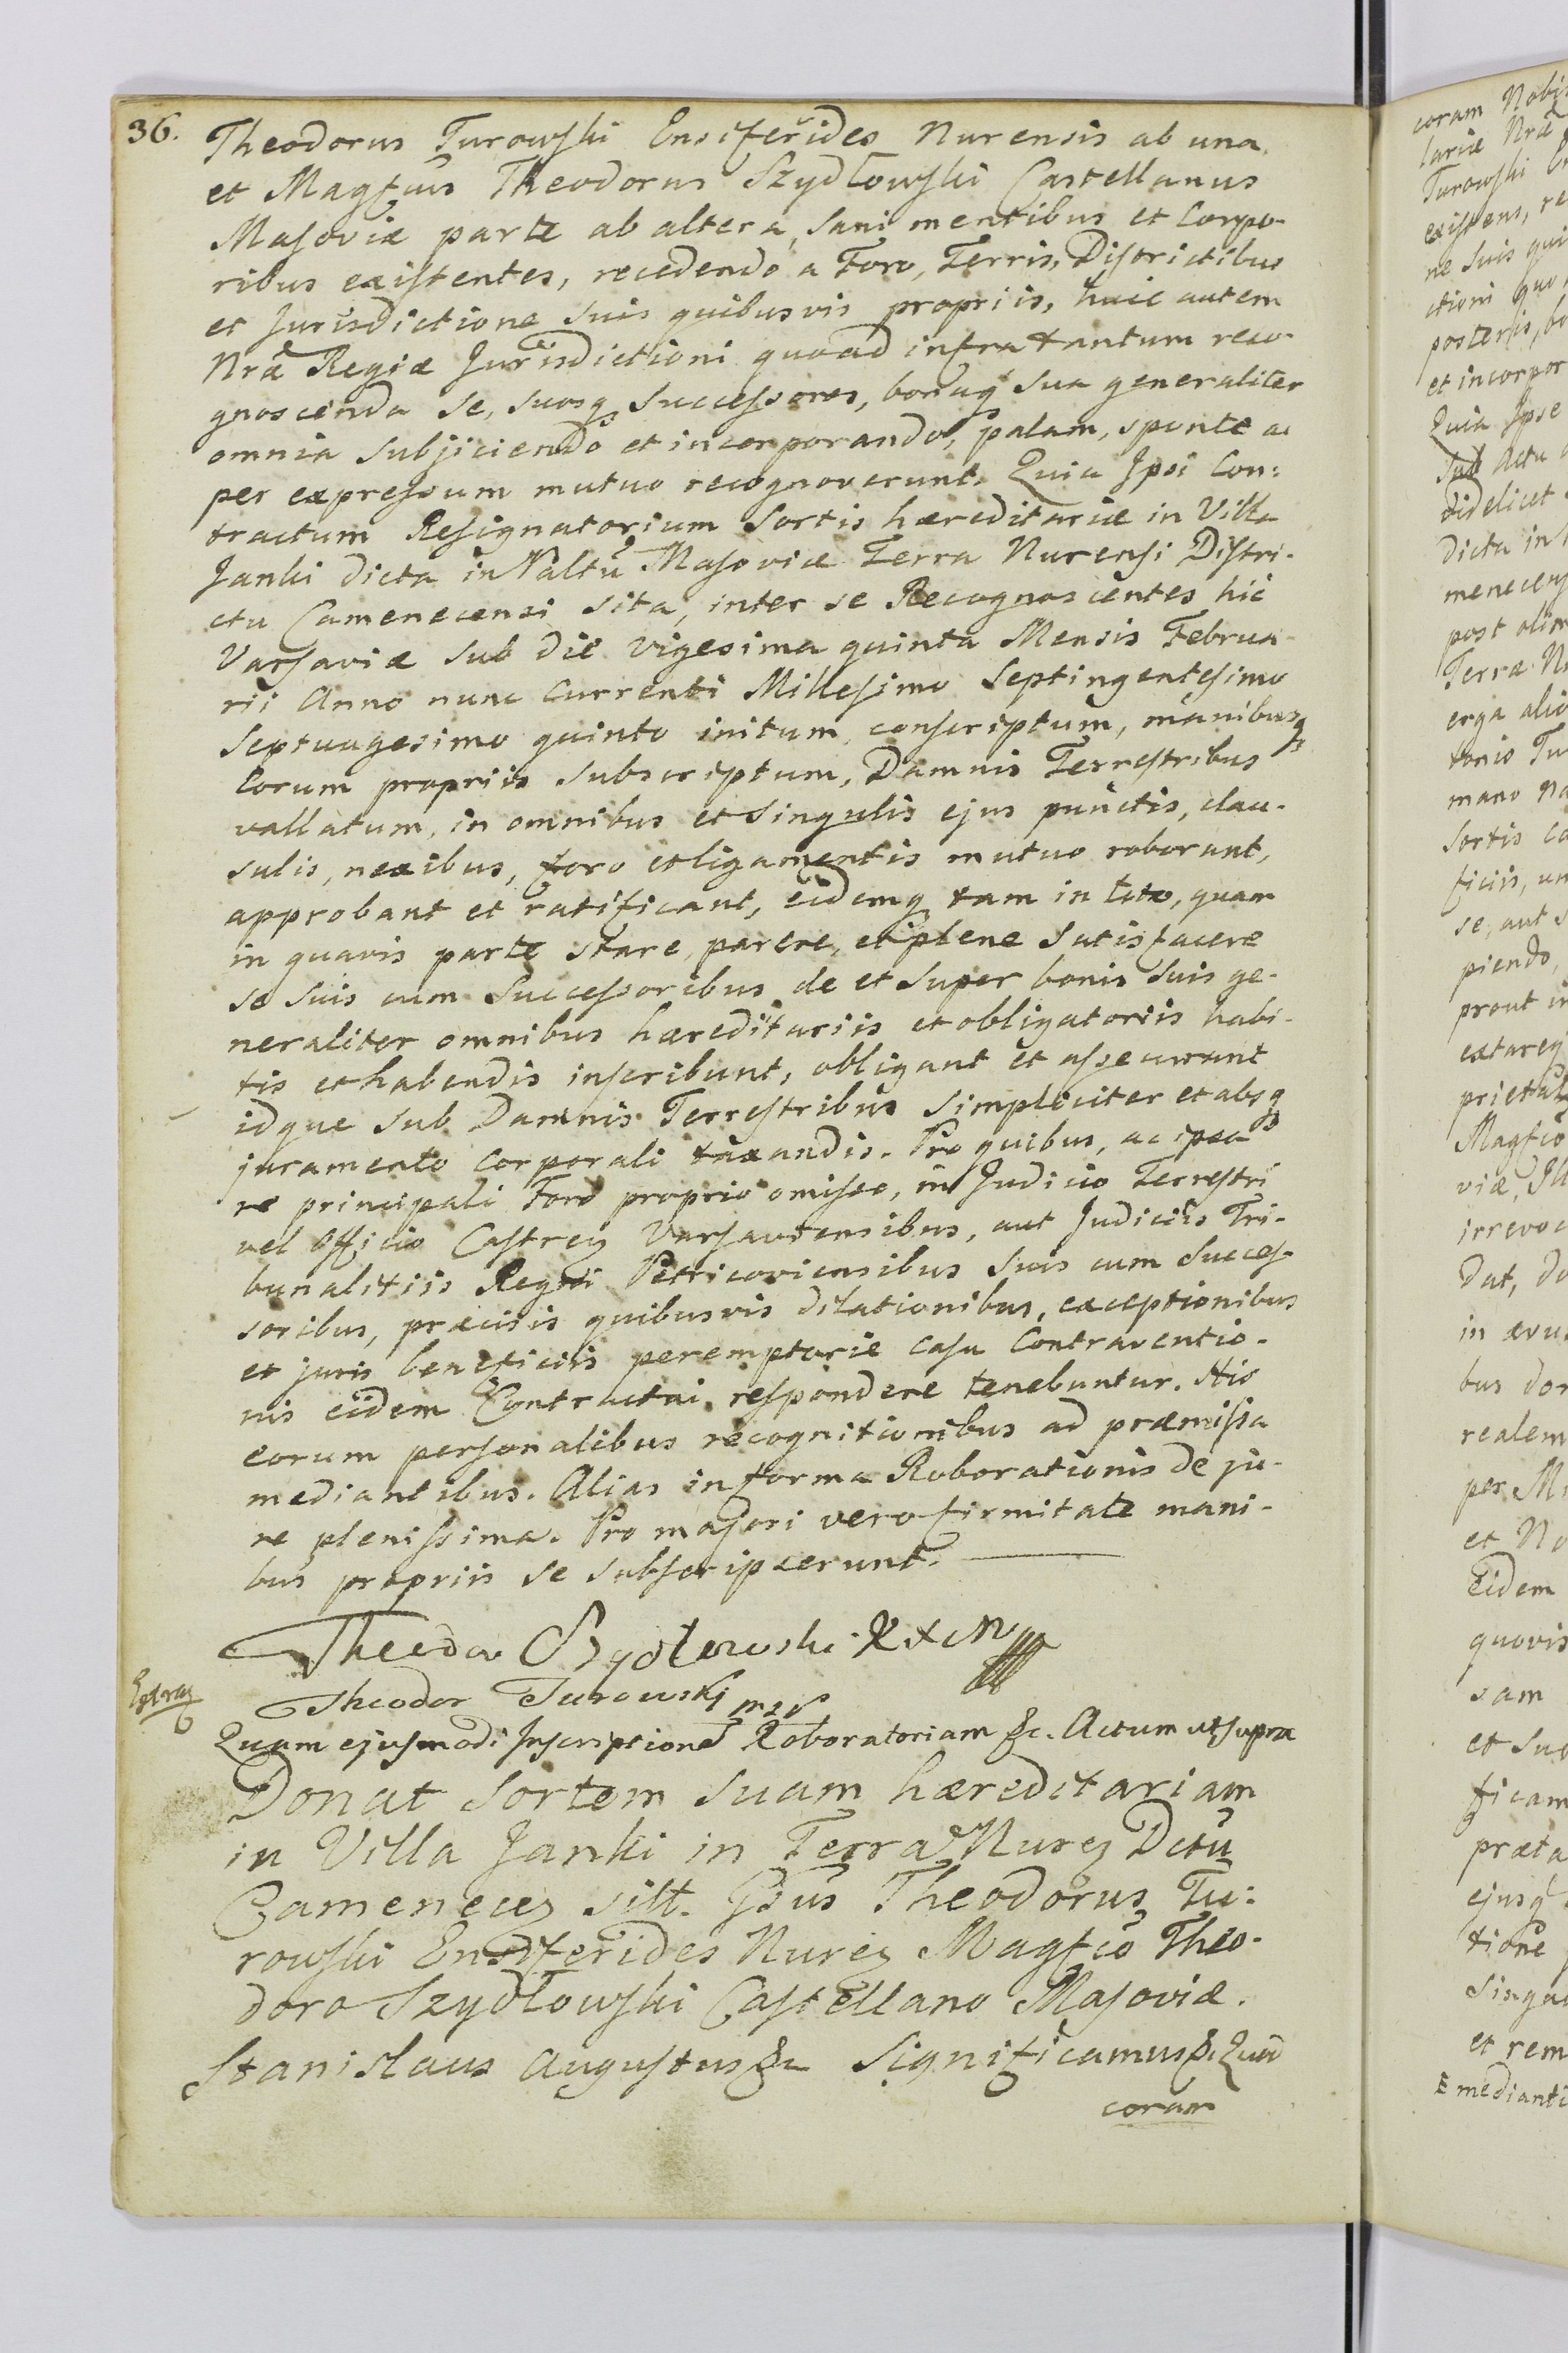 36.
Theodorus Turowski Ensiferides Nurensis ab una
et Magfcus Theodorus Szydłowski Castellanus
Masoviæ parte ab altera, sani mentibus et corpo-
ribus existentes, recedendo a Foro, Terris, Districtibus
et Jurisdictione suis quibusvis propriis, huic autem
Nræ Regiæ Jurisdictioni quoad infra tantum reco-
gnoscenda se, suosq successores, bonaq sua generaliter
omnia subjiciendo et incorporando, palam, sponte ac
per expressum mutuo recognoverunt. Quia Ipsi Con:
tractum Resignatorium sortis hæreditariæ in Villa
Janki dicta in Palttu Masoviæ Terra Nurensi Distri-
ctu Camenecensi sita, inter se Recognoscentes hic
Varsaviæ sub die vigesima quinta Mensis Februa-
rii Anno nunc currenti Millesimo Septingentesimo
Septuagesimo quinto initum, conscriptum, manibusq
Eorum propriis subscriptum, Damnis Terrestribus
vallatum, in omnibus et singulis ejus punctis, clau-
sulis, nexibus, foro et ligamentis mutuo roborant,
approbant et ratificant, eidemq tam in toto, quam
in quavis parte stare, parere, et plene satisfacere
se suis cum Successoribus de et super bonis suis ge-
neraliter omnibus hæreditariis et obligatoriis habi-
tis et habendis inscribunt, obligant et assecurant
idque sub Damnis Terrestribus simpliciter et absq
juramento corporali taxandis. Pro quibus, ac ipsa
re principali Foro proprio omisso, in Judicio Terrestri
vel Officio Castren Varsaviensibus, aut Judiciis Tri-
bunalitiis Regni Petricoviensibus suis cum Succes-
soribus, præcisis quibusvis dilationibus, exceptionibus
et juris beneficiis peremptorie casu Contraventio-
nis eidem Contractui respondere tenebuntur. His
eorum personalibus recognitionibus ad præmissa
mediantibus. Alias in forma Roborationis de ju-
re plenissima. Pro majori vero firmitate mani-
bus propriis se subscripserunt.
Theodor Szydłowski K x M
Extrag
Theodor Turowski mpr
Quam ejusmodi Inscriptione Roboratoriam &c. Actum ut supra
Donat sortem suam hæreditariam
in Villa Janki in Terra Nuren Dctu
Camenecen sitt. Gsus Theodorus Tu:
rowski Ensiferides Nuren Magfco Theo-
doro Szydłowski Castellano Masoviæ.
Stanislaus Augustus &c Significamus &c Quod
coram
coram Nobis
lariæ Nræ
Turowski En
existens, re
ne suis qui
ctioni quo
posteris, bo
et incorpor
Quia Ipse
sub Actu
videlicet
dicta in
menecens
post olim
Terræ Nu
erga alio
tonio Tu
mano na
sortis ca
ficiis, un
se, aut s
piendo,
prout in
extareq
prietat
Magfco
viæ, Ill
irrevoc
Dat, do
in ævu
bus don
realem
per Mi
et No
Eidem
quovis
sam
et suc
ficam
præta
ejusq
tione
singu
et rem
mediantib